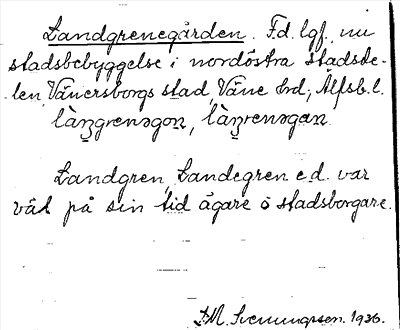 Landgrenegården. F.d. lgf. nu
stadsbebyggelse i nordöstra stadsde-
len, Vänersborgs stad, Väne hd, Älfsb. l.
Landgren, Landegren e.d. var
väl på sin tid ägare o stadsborgare.
J.M. Svenungsson. 1936.